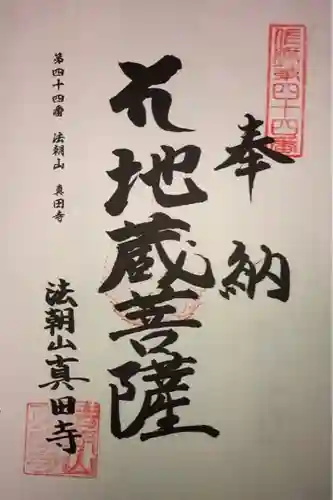 佐渡第四十四番
奉納
地蔵菩薩
法朝山真田寺
第四十四番 法朝山 真田寺